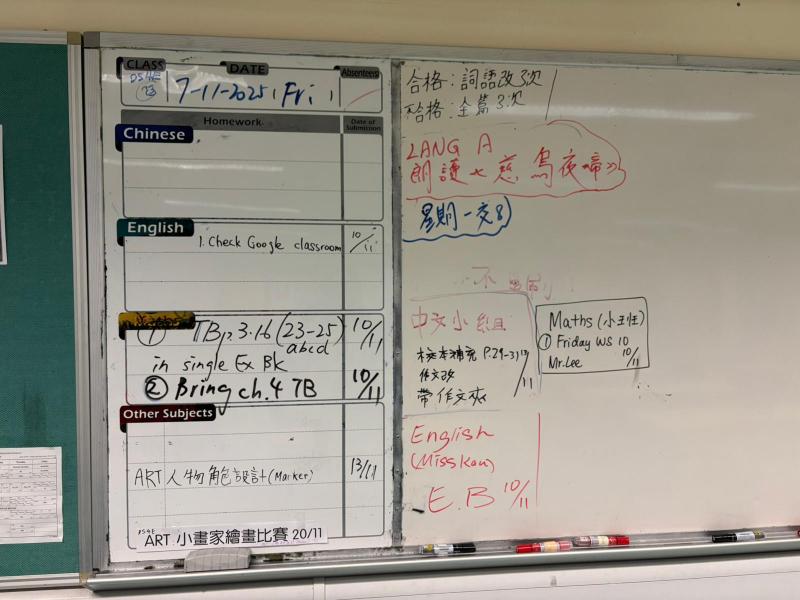 CLASS DATE Absentees
7-11-2025 (Fri)
Homework Date of Submission
Chinese
English
1. Check Google classroom 10/11
① TB p.3.16 (23-25) 10/11
abcd
in single Ex Bk
② Bring ch.4 TB 10/11
Other Subjects
ART 人物角色設計 (Marker) 13/11
ART 小畫家繪畫比賽 20/11
合格：詞語改3次
不合格：全篇3次
LANG A
朗讀《慈烏夜啼》
星期一交
中文小組
校本補充 P.29-31
作文改
帶作文夾
/11
Maths (小班)
① Friday WS 10
Mr.Lee 10/11
English
E.B 10/11